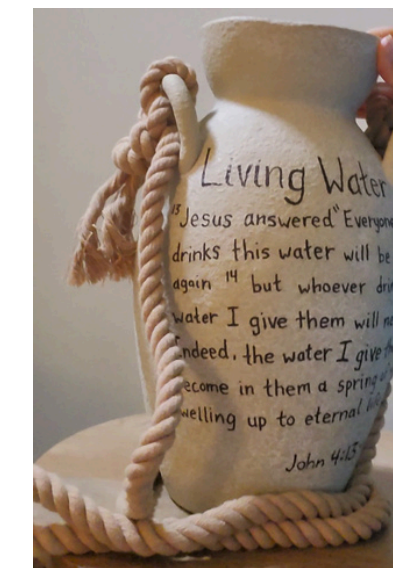 Living Water
13 Jesus answered "Everyone
drinks this water will be
again 14 but whoever
water I give them will
Indeed, the water I give
become in them a spring
welling up to eternal life
John 4:13